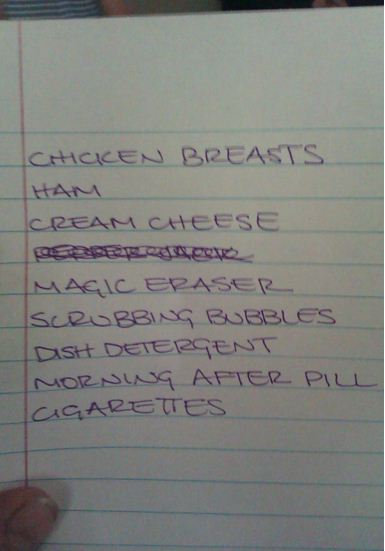 CHICKEN BREASTS
HAM
CREAM CHEESE
PEPPER JACK
MAGIC ERASER
SCRUBBING BUBBLES
DISH DETERGENT
MORNING AFTER PILL
CIGARETTES